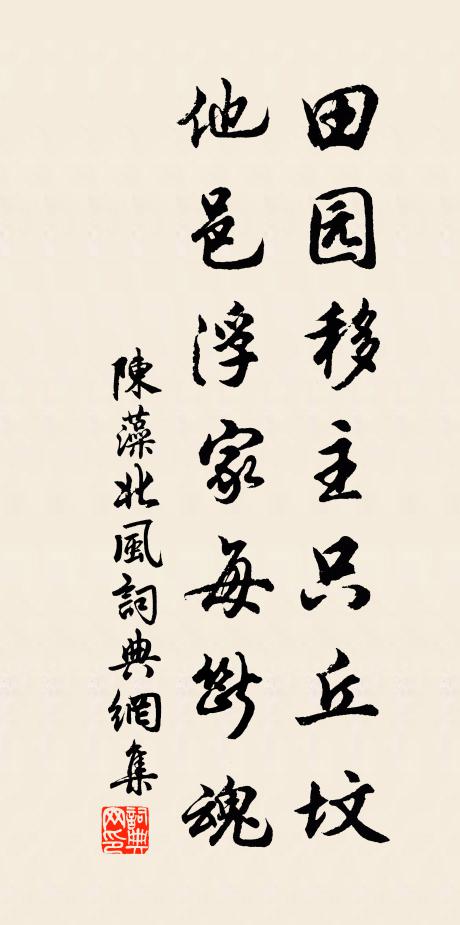 田园移主只丘坟
他邑浮家每断魂
陳藻北風詞典網集
詞典
网印